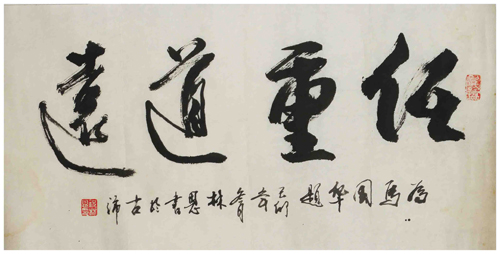 任重道遠
為馬國華題己卯林恩書於古沛